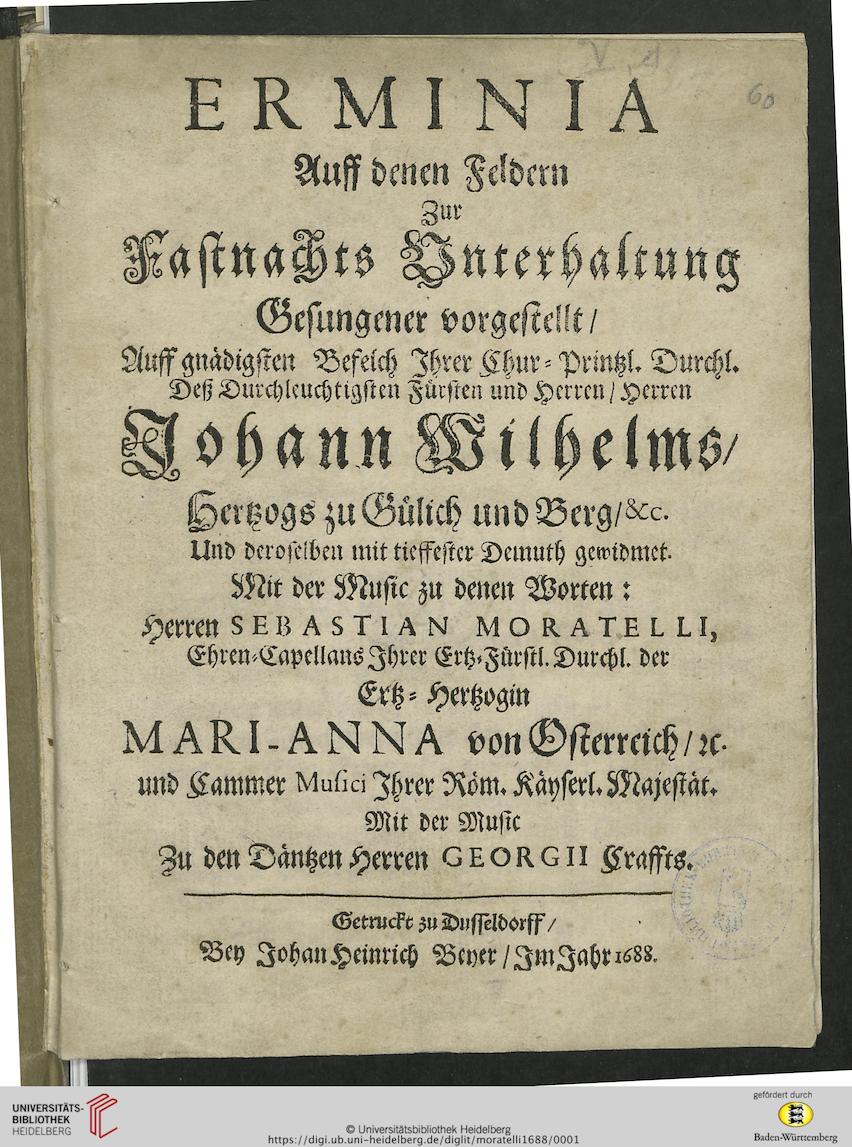 ERMINIA
Auff denen Feldern
Zur
Fastnachts Unterhaltung
Gesungener vorgestellt /
Auff gnädigsten Befelch Ihrer Chur-Printzl. Durchl.
Deß Durchleuchtigsten Fürsten und Herren / Herren
Johann Wilhelms /
Hertzogs zu Gülich und Berg / &c.
Und deroselben mit tieffester Demuth gewidmet.
Mit der Music zu denen Worten :
Herren SEBASTIAN MORATELLI,
Ehren-Capellans Ihrer Ertz-Fürstl. Durchl. der
Ertz-Hertzogin
MARI-ANNA von Osterreich / ꝛc.
und Cammer Musici Ihrer Röm. Käyserl. Majestät.
Mit der Music
Zu den Däntzen Herren GEORGII Craffts.
Getruckt zu Dusseldorff /
Bey Johan Heinrich Beyer / Im Jahr 1688.
60
UNIVERSITÄTS-
BIBLIOTHEK
HEIDELBERG
© Universitätsbibliothek Heidelberg
https://digi.ub.uni-heidelberg.de/diglit/moratelli1688/0001
gefördert durch
Baden-Württemberg